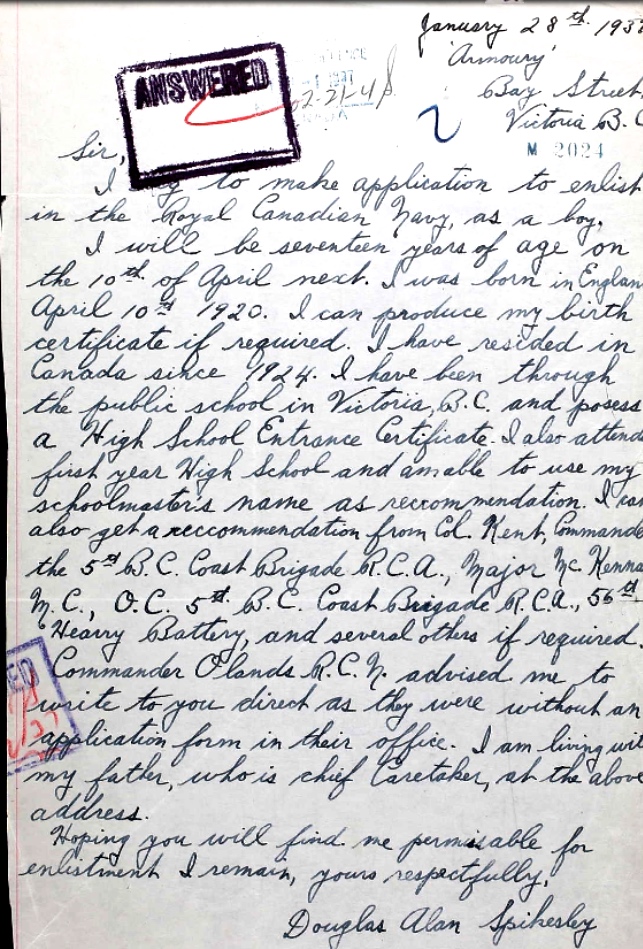 January 28th. 193
'Armoury'
ANSWERED
02-21-48
Bay Street
Victoria B.C
M 2024
Sir,
I to make application to enlist
in the Royal Canadian Navy, as a boy.
I will be seventeen years of age on
the 10th of April next. I was born in Englan
April 10th 1920. I can produce my birth
certificate if required. I have resided in
Canada since 1924. I have been through
the public school in Victoria, B.C. and posess
a High School Entrance Certificate. I also attend
first year High School and am able to use my
schoolmaster's name as recommendation. I can
also get a reccommendation from Col. Kent, Commande
the 5th B.C. Coast Brigade R.C.A., Major Mc. Kenna
M.C., O.C. 5th. B.C. Coast Brigade R.C.A., 56th
Heavy Battery, and several others if required.
Commander Olands R.C.N. advised me to
write to you direct as they were without an
application form in their office. I am living wit
my father, who is chief Caretaker, at the above
address.
Hoping you will find me permissable for
enlistment I remain, yours respectfully,
Douglas Alan Spikesley